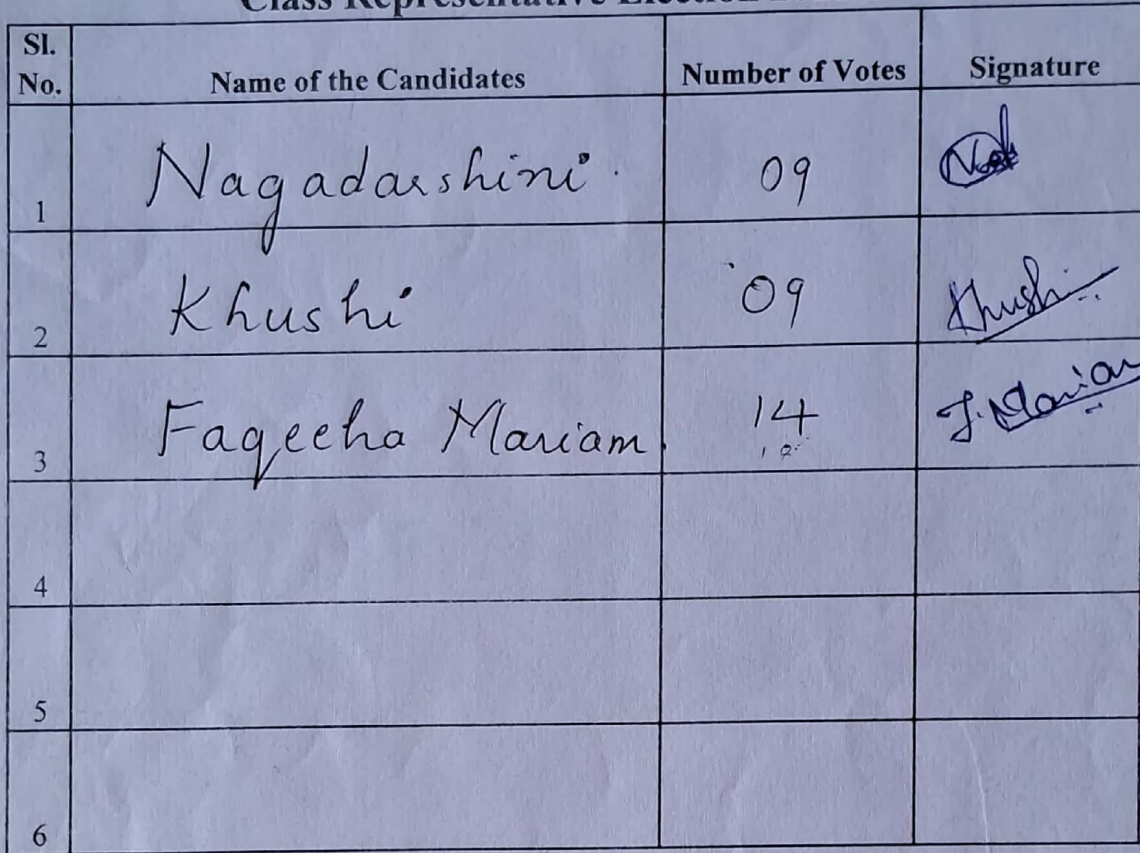 Class Representative Election
Sl. No. Name of the Candidates Number of Votes Signature
1 Nagadarshini 09
2 Khushi 09 Khushi
3 Faqeeha Mariam 14 F. Mariam
4
5
6